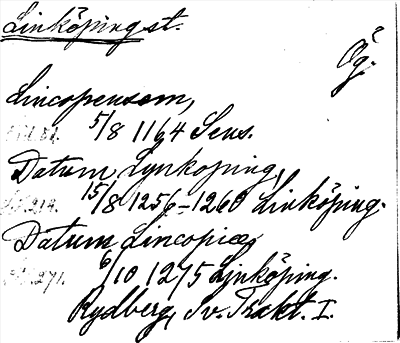 Linköping st.
Ög.
Lincopensem,
5/8 1164 Sens.
Datum Lynkoping,
s. 214. 15/8 1256-1260 Linköping.
Datum Lincopie,
s. 271. 6/10 1275 Linköping.
Rydberg, Sv. Trakt. I.